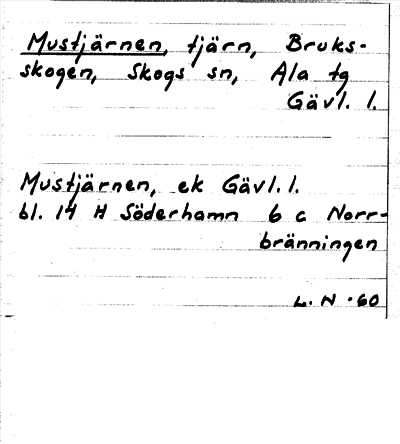 Mustjärnen, tjärn, Bruks-
skogen, Skogs sn, Ala tg
Gävl. l.
Mustjärnen, ek Gävl. l.
bl. 14 H Söderhamn 6 c Norr-
bränningen
L. N -60